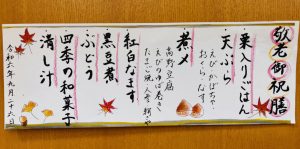 敬老御祝膳
栗入りごはん
天ぷら
えび・かぼちゃ・
おくら・なす
煮〆
高野豆腐
えびのゆば巻き
たまご焼・人参
紅白なます
黒豆煮
ぶどう
四季の和菓子
清し汁
令和六年九月二十六日